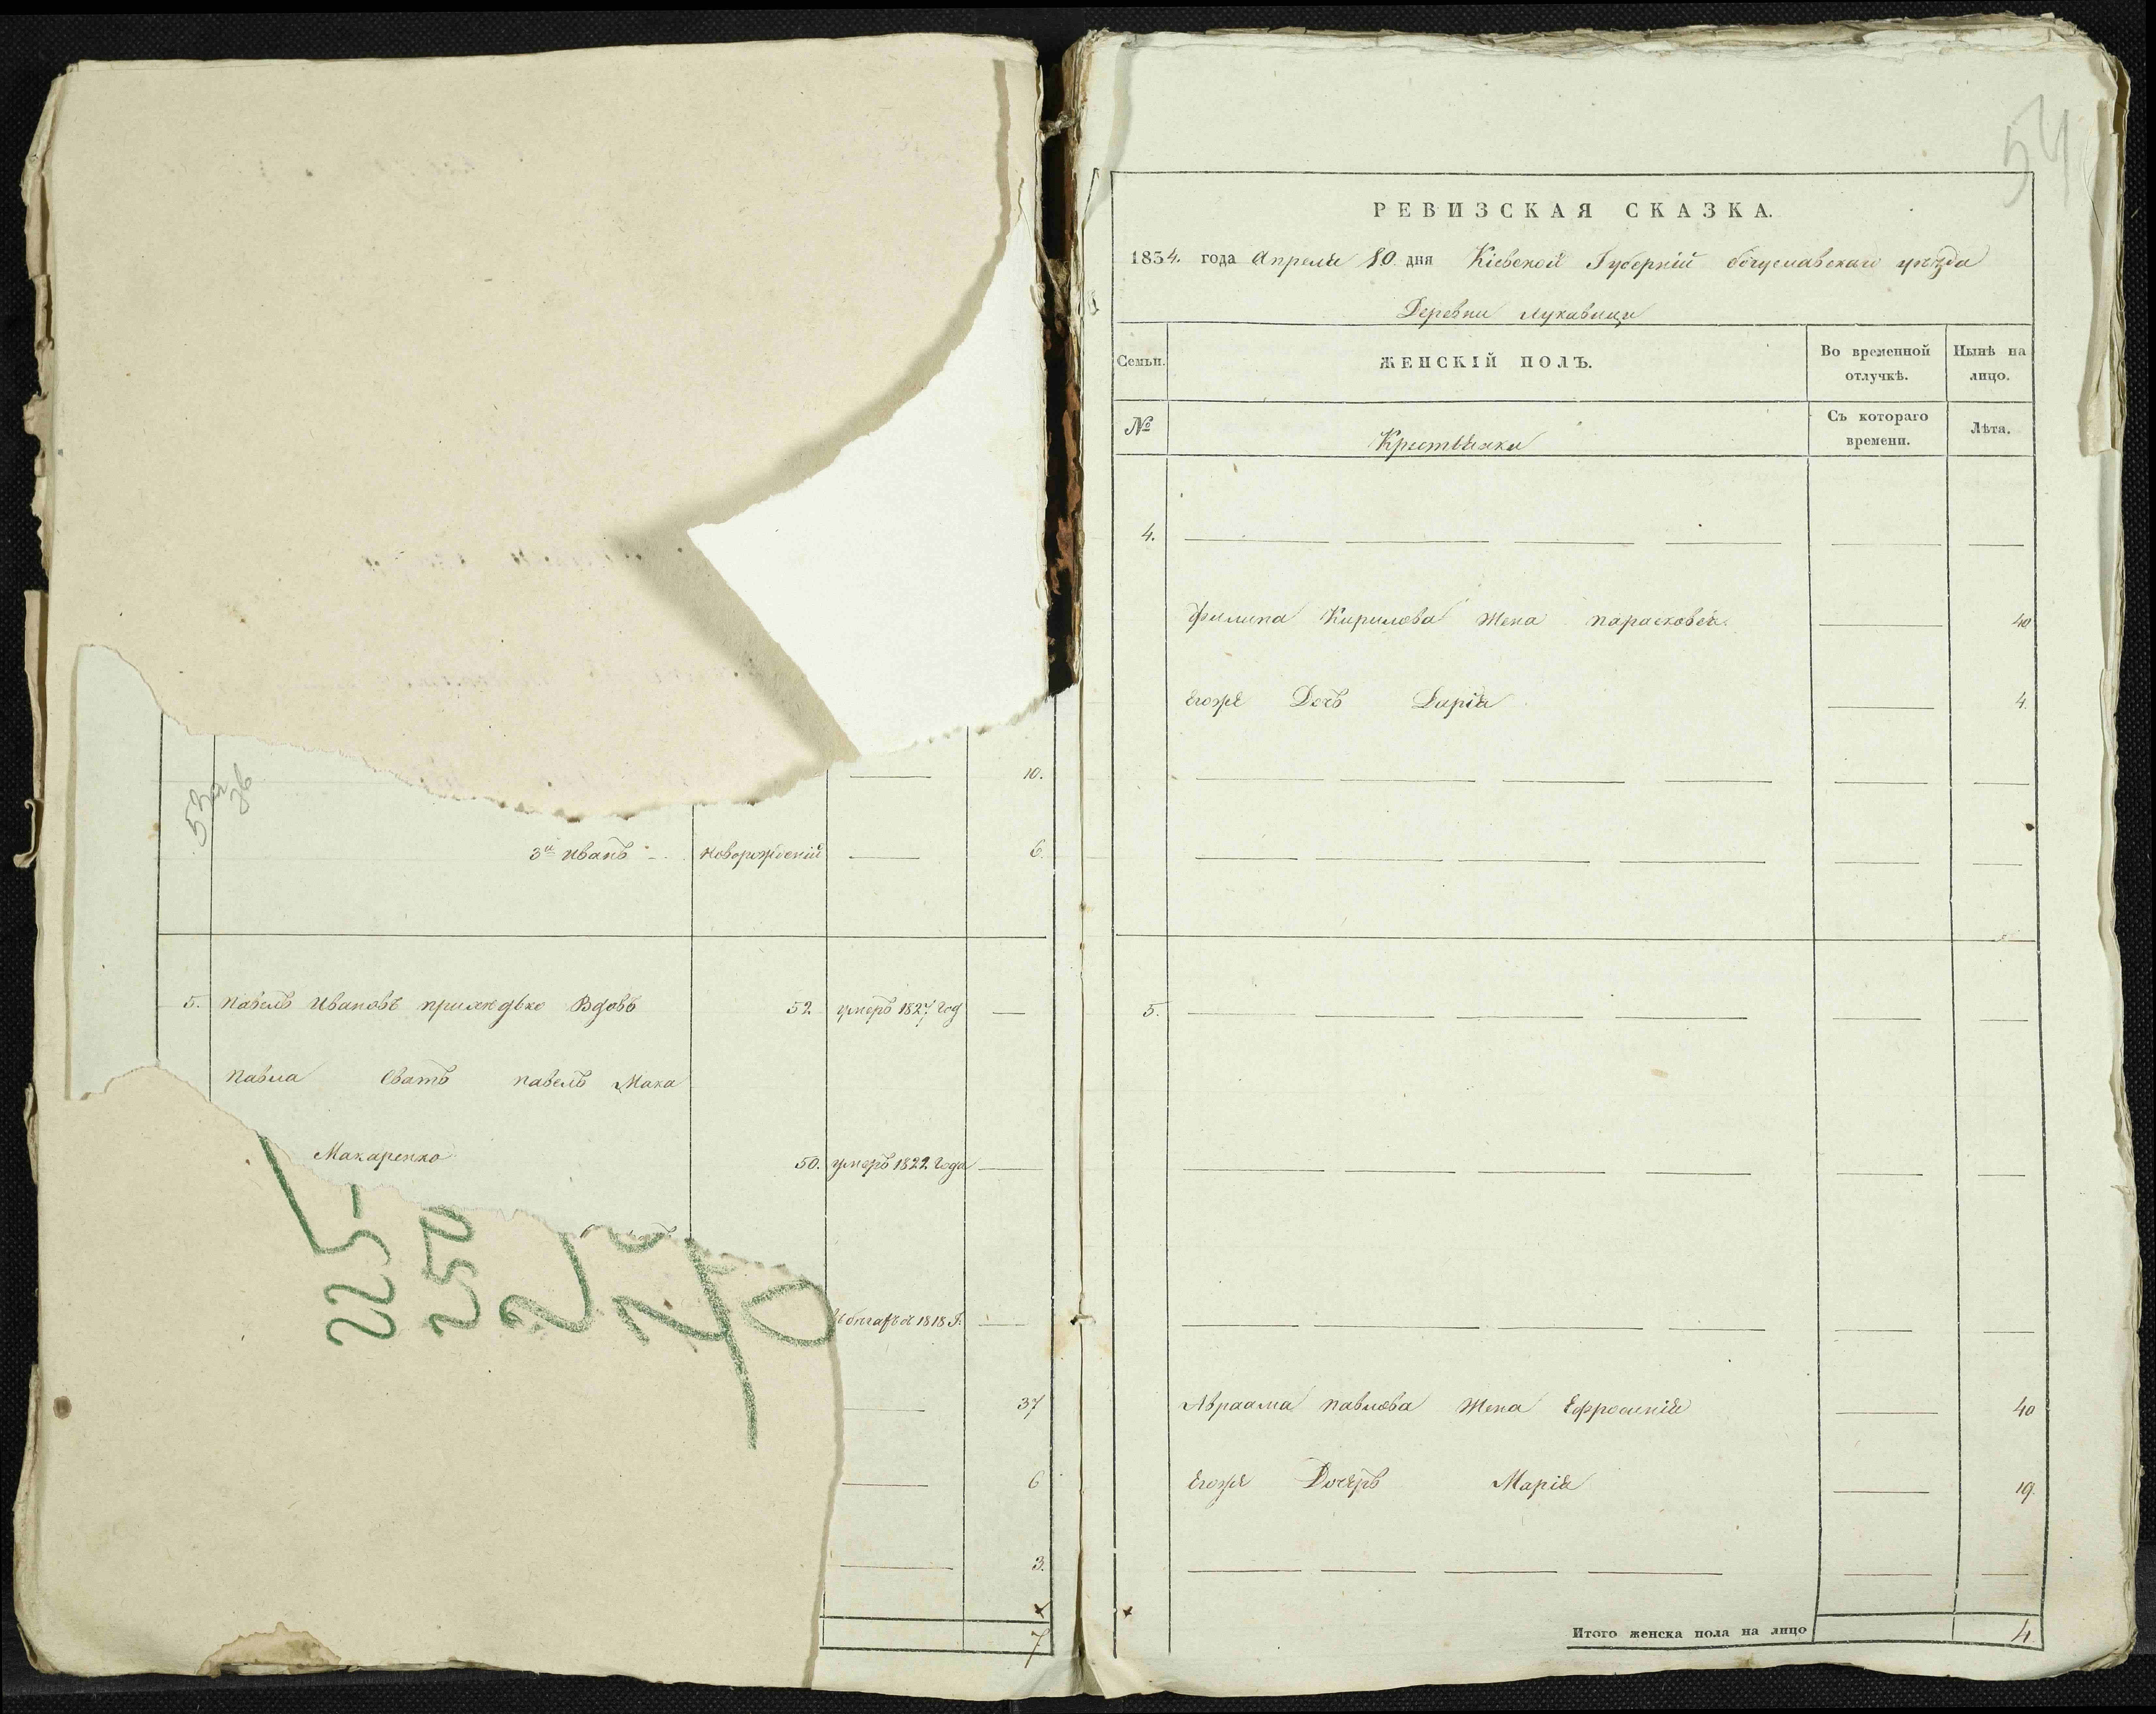 53а
зв
10.
3й Иванъ новорожденій 6.
5. павелъ Ивановъ прилядько Вдовъ 52. умеръ 1827 год
павла Сватъ павелъ Мака
Макаренко 50. умеръ 1822 года
225
250
1818 г.
37
6
3.
7
54
РЕВИЗСКАЯ СКАЗКА.
1834. года Апреля 10 дня Кіевской Губерніи богуславскаго уезда
Деревни Лукавици
Семьи. ЖЕНСКІЙ ПОЛЪ. Во временной отлучкѣ. Нынѣ на лицо.
№ Крестьянки Съ котораго времени. Лѣта.
4.
Филипа Кирилова Жена парасковея. 40
Егоже Дочь Дарія 4.
5.
Авраама павлова Жена Ефросинія 40
Егоже Дочеръ Марія 19.
Итого женска пола на лицо 4.